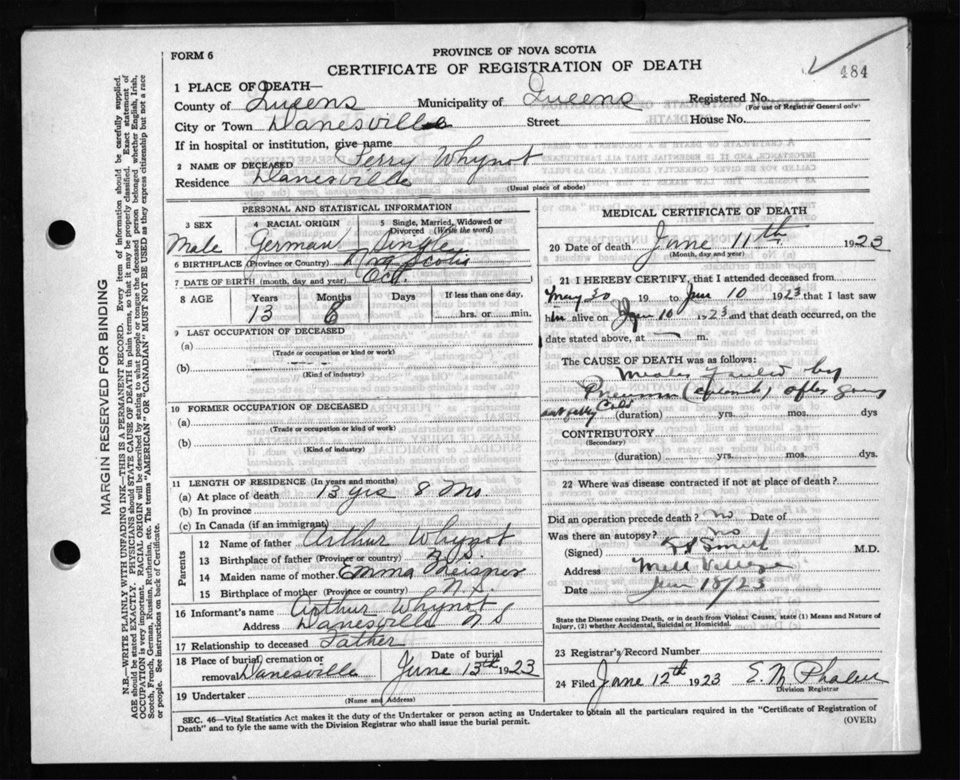 484
FORM 6
PROVINCE OF NOVA SCOTIA
CERTIFICATE OF REGISTRATION OF DEATH
1 PLACE OF DEATH—
County of Queens Municipality of Queens Registered No.
(For use of Registrar General only)
City or Town Danesville Street House No.
If in hospital or institution, give name
2 NAME OF DECEASED Perry Whynot
Residence Danesville
(Usual place of abode)
PERSONAL AND STATISTICAL INFORMATION
3 SEX 4 RACIAL ORIGIN 5 Single, Married, Widowed or Divorced (Write the word)
Male German Single
6 BIRTHPLACE (Province or Country) Nova Scotia
7 DATE OF BIRTH (month, day and year) Oct.
8 AGE Years Months Days If less than one day,
13 8 hrs. or min.
9 LAST OCCUPATION OF DECEASED
(a)
(Trade or occupation or kind or work)
(b)
(Kind of industry)
10 FORMER OCCUPATION OF DECEASED
(a)
(Trade or occupation or kind of work)
(b)
(Kind of industry)
11 LENGTH OF RESIDENCE (In years and months)
(a) At place of death 13 yrs 8 Mo
(b) In province
(c) In Canada (if an immigrant)
Parents
12 Name of father Arthur Whynot
13 Birthplace of father (Province or country) N.S.
14 Maiden name of mother Emma Meisner
15 Birthplace of mother (Province or country) N.S.
16 Informant's name Arthur Whynot
Address Danesville N S
17 Relationship to deceased Father
18 Place of burial, cremation or removal Danesville Date of burial June 13th 1923
19 Undertaker
(Name and Address)
MEDICAL CERTIFICATE OF DEATH
20 Date of death June 11th 1923
(Month, day and year)
21 I HEREBY CERTIFY, that I attended deceased from
May 30 19 to June 10 1923 that I last saw
him alive on June 10 1923 and that death occurred, on the
date stated above, at m.
The CAUSE OF DEATH was as follows:
by
after
(duration) yrs. mos. dys
CONTRIBUTORY
(Secondary)
(duration) yrs. mos. dys.
22 Where was disease contracted if not at place of death?
Did an operation precede death? no Date of
Was there an autopsy? no
(Signed) M.D.
Address Mill Village
Date /23
State the Disease causing Death, or in death from Violent Causes, state (1) Means and Nature of Injury, (2) whether Accidental, Suicidal or Homicidal.
23 Registrar's Record Number
24 Filed June 12th 1923 E. M. Phalen
Division Registrar
SEC. 46—Vital Statistics Act makes it the duty of the Undertaker or person acting as Undertaker to obtain all the particulars required in the "Certificate of Registration of
Death" and to fyle the same with the Division Registrar who shall issue the burial permit.
(OVER)
MARGIN RESERVED FOR BINDING
N.B.—WRITE PLAINLY WITH UNFADING INK—THIS IS A PERMANENT RECORD. Every item of information should be carefully supplied.
AGE should be stated EXACTLY. PHYSICIANS should STATE CAUSE OF DEATH in plain terms, so that it may be properly classified. Exact statement of
OCCUPATION is very important. RACIAL ORIGIN will be described by stating to what people or tongue the deceased person belonged whether English, Irish,
Scotch, French, German, Russian, Ruthenian, etc. The terms "AMERICAN" OR "CANADIAN" MUST NOT BE USED as they express citizenship but not a race
or people. See instructions on back of Certificate.